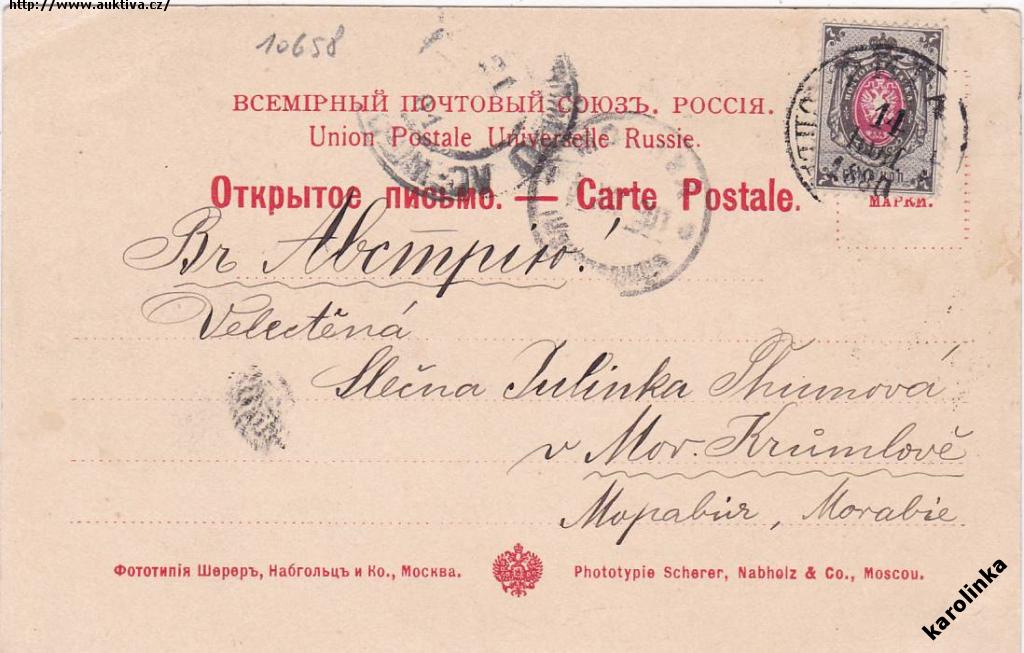 http://www.auktiva.cz/
10658
ВСЕМІРНЫЙ ПОЧТОВЫЙ СОЮЗЪ. РОССІЯ.
Union Postale Universelle Russie.
Открытое письмо. — Carte Postale.
МАРКИ.
Въ Австрію!
Velectěná
Slečna Julinka Thumová
v Mor. Krůmlově
Моравия, Moravie
Фототипія Шереръ, Набгольцъ и Ко., Москва.
Phototypie Scherer, Nabholz & Co., Moscou.
karolinka